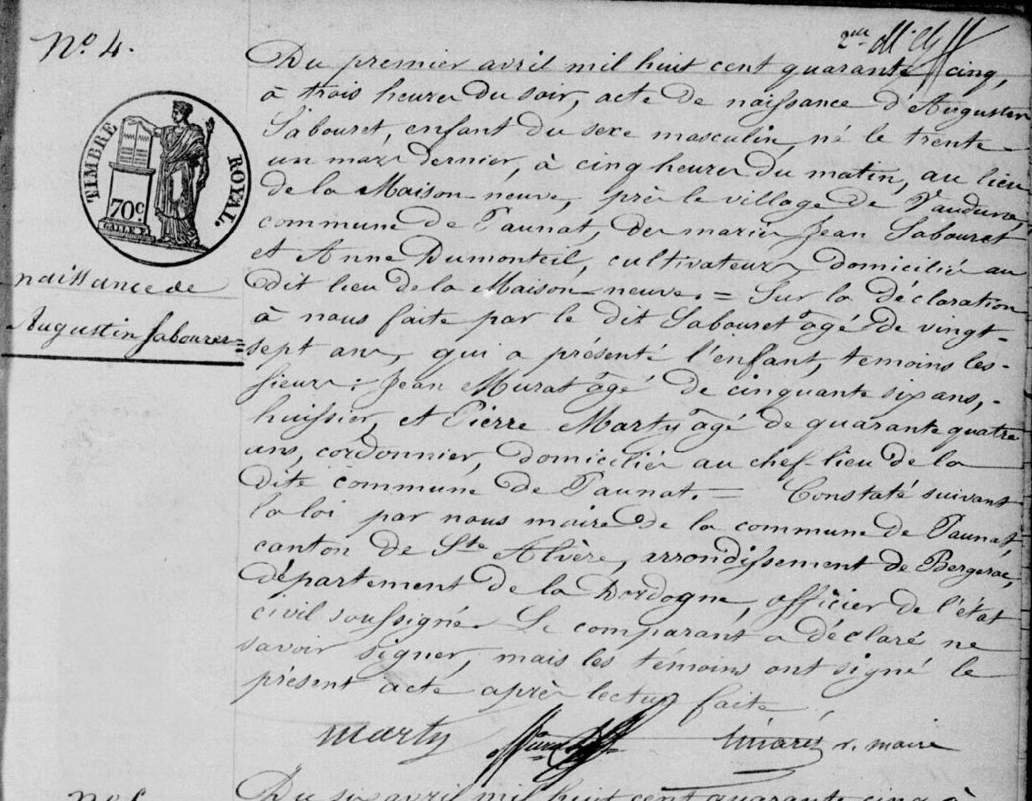 N° 4.
Du premier avril mil huit cent quarante cinq,
à trois heures du soir, acte de naissance d'Augustin
Sabouret, enfant du sexe masculin, né le trente
un mars dernier, à cinq heures du matin, au lieu
de la Maison-neuve, près le village de
commune de Paunat, des mariés Jean Sabouret
et Anne Dumonteil, cultivateurs, domiciliés au
dit lieu de la Maison-neuve. = Sur la déclaration
à nous faite par le dit Sabouret âgé de vingt-
sept ans, qui a présenté l'enfant, temoins les-
sieurs : Jean Murat âgé de cinquante six ans, -
huissier, et Pierre Marty âgé de quarante quatre
ans, cordonnier, domiciliés au chef-lieu de la
dite commune de Paunat. = Constaté suivant
la loi par nous maire de la commune de Paunat,
canton de Ste Alvère, arrondissement de Bergerac,
département de la Dordogne, officier de l'état
civil soussigné. Le comparant a déclaré ne
savoir signer, mais les témoins ont signé le
présent acte après lecture faite.
TIMBRE ROYAL.
70c
naissance de
Augustin Sabouret =
Marty
Linares r. maire
Du six avril mil huit cent quarante cinq à